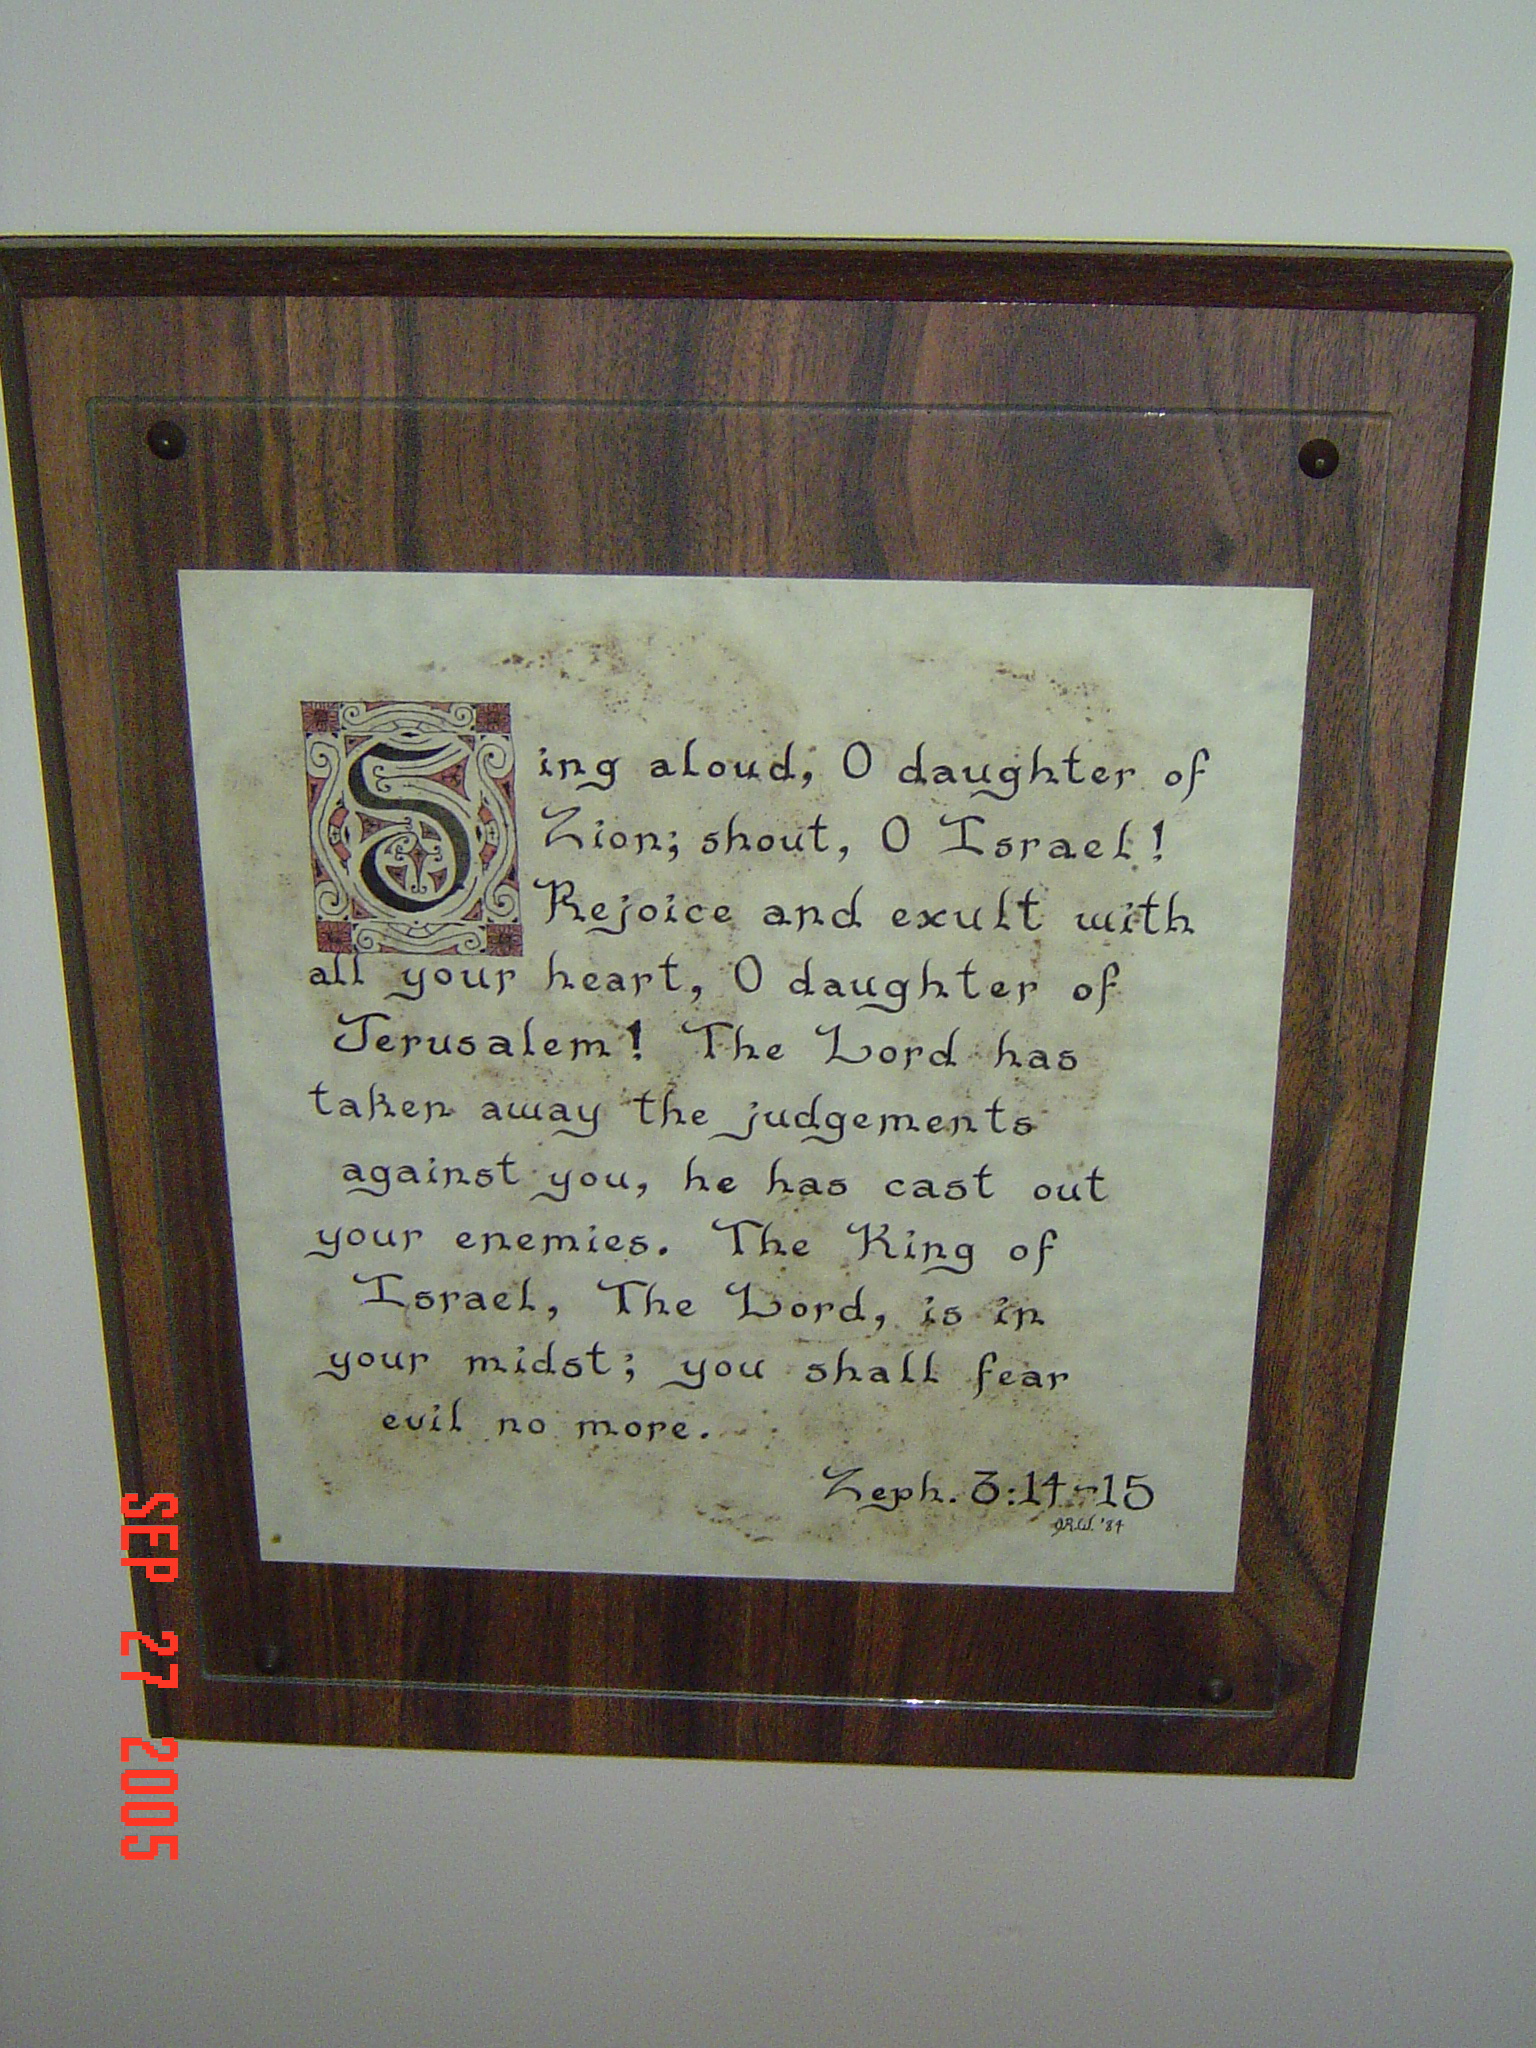 Sing aloud, O daughter of
Zion; shout, O Israel!
Rejoice and exult with
all your heart, O daughter of
Jerusalem! The Lord has
taken away the judgements
against you, he has cast out
your enemies. The King of
Israel, The Lord, is in
your midst; you shall fear
evil no more.
Zeph. 3:14-15
J.R.W. '84
SEP 27 2005